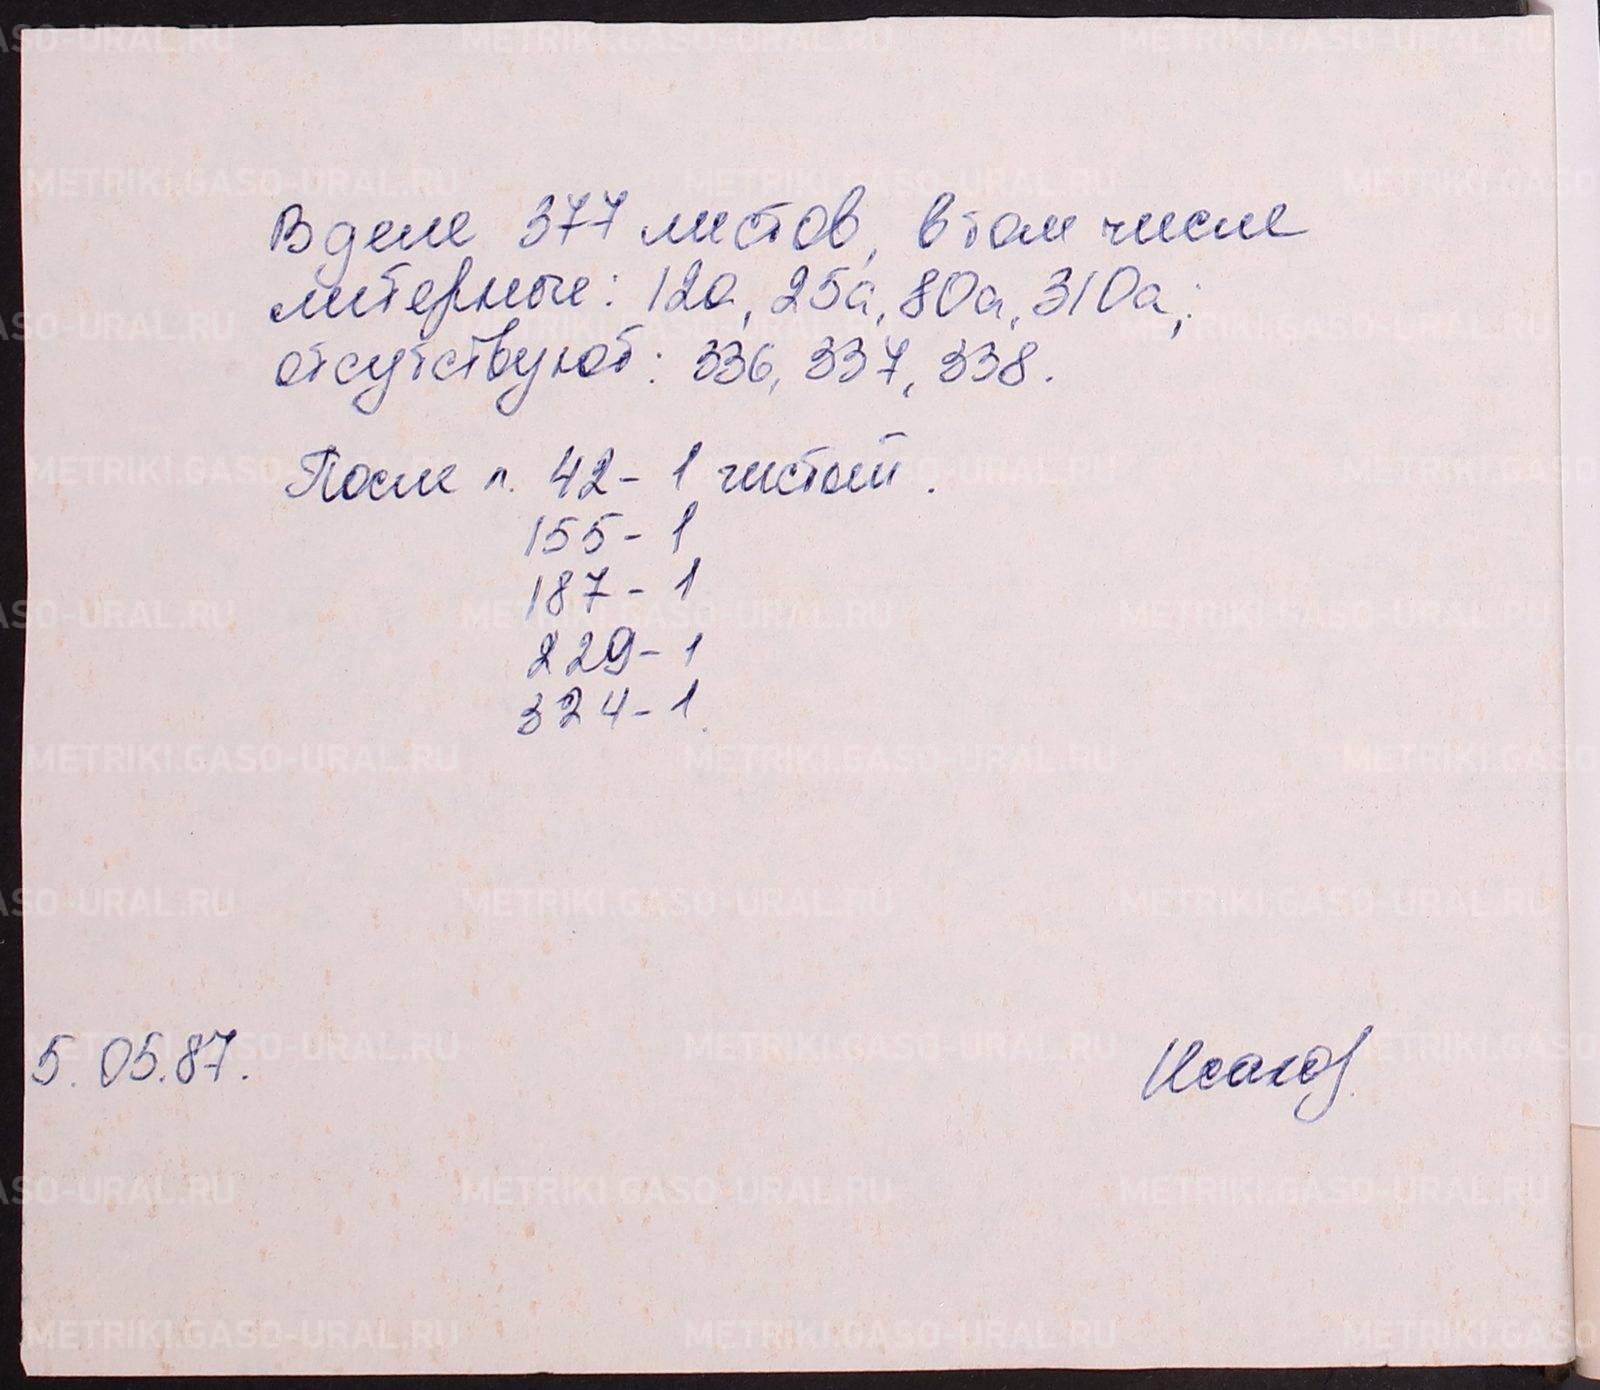 В деле 377 листов, в том числе
литерные: 12а, 25а, 80а, 310а;
отсутствуют: 336, 337, 338.
После л. 42 - 1 чистый.
155 - 1
187 - 1
229 - 1
324 - 1.
5.05.87.
METRIKI.GASO-URAL.RU